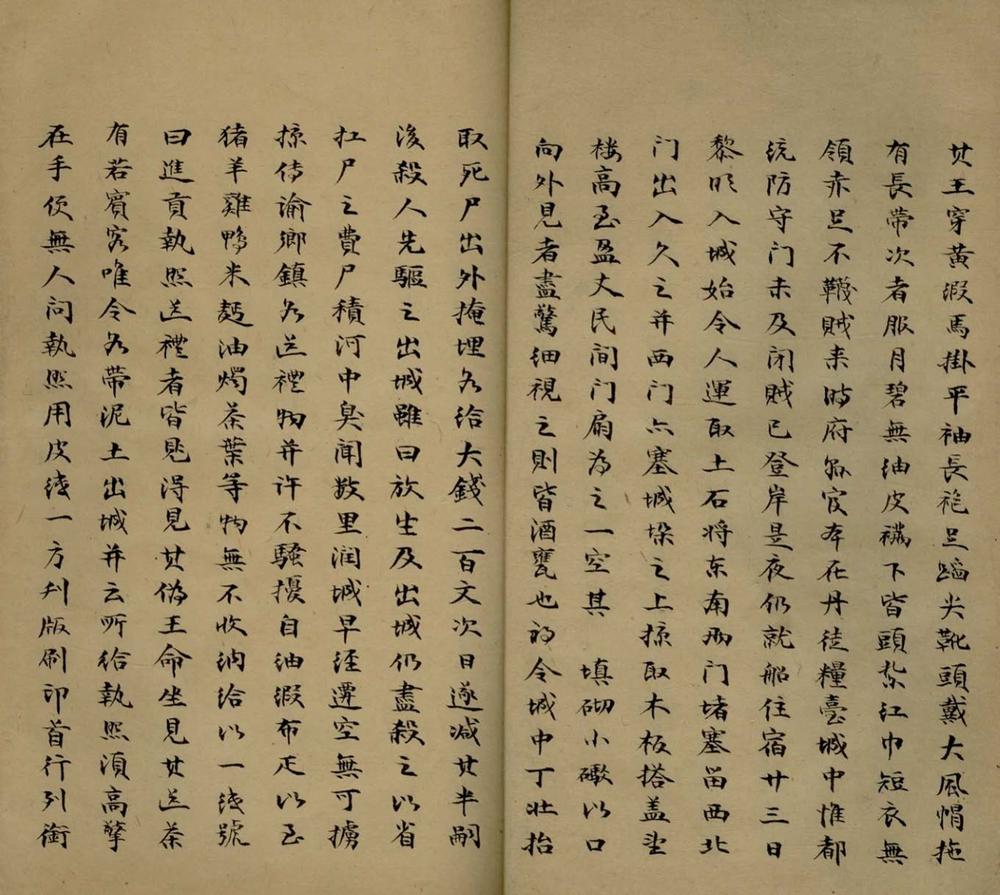 其王穿黄緞馬掛平袖長袍足蹈尖靴頭戴大風帽拖
有長带次者服月碧無紬皮襔下皆頭紥红巾短衣無
領赤足不韈賊来時府縣官本在丹徒糧臺城中惟都
统防守门未及闭賊已登岸是夜仍就船住宿廿三日
黎明入城始令人運取土石将东南兩门堵塞畱西北
门出入久之并西门亦塞城垜之上掠取木板搭盖望
楼高至盈丈民间门扇為之一空其 填砌小礮以口
向外見者盡驚细視之則皆酒甕也初令城中丁壮抬
取死尸出外掩埋各给大錢二百文次日遂减其半嗣
後殺人先驅之出城雖曰放生及出城仍盡殺之以省
扛尸之費尸積河中臭闻数里润城早经遷空無可擄
掠传谕鄉鎮各送禮物并许不騷擾自油緞布疋以至
猪羊雞鴨米麺油燭茶葉等物無不收纳给以一纸號
曰進貢執照送禮者皆見得見其偽王命坐見其送茶
有若賓客唯令各带泥土出城并云所给執照須高擎
在手便無人问執照用皮纸一方刋版刷印首行列銜